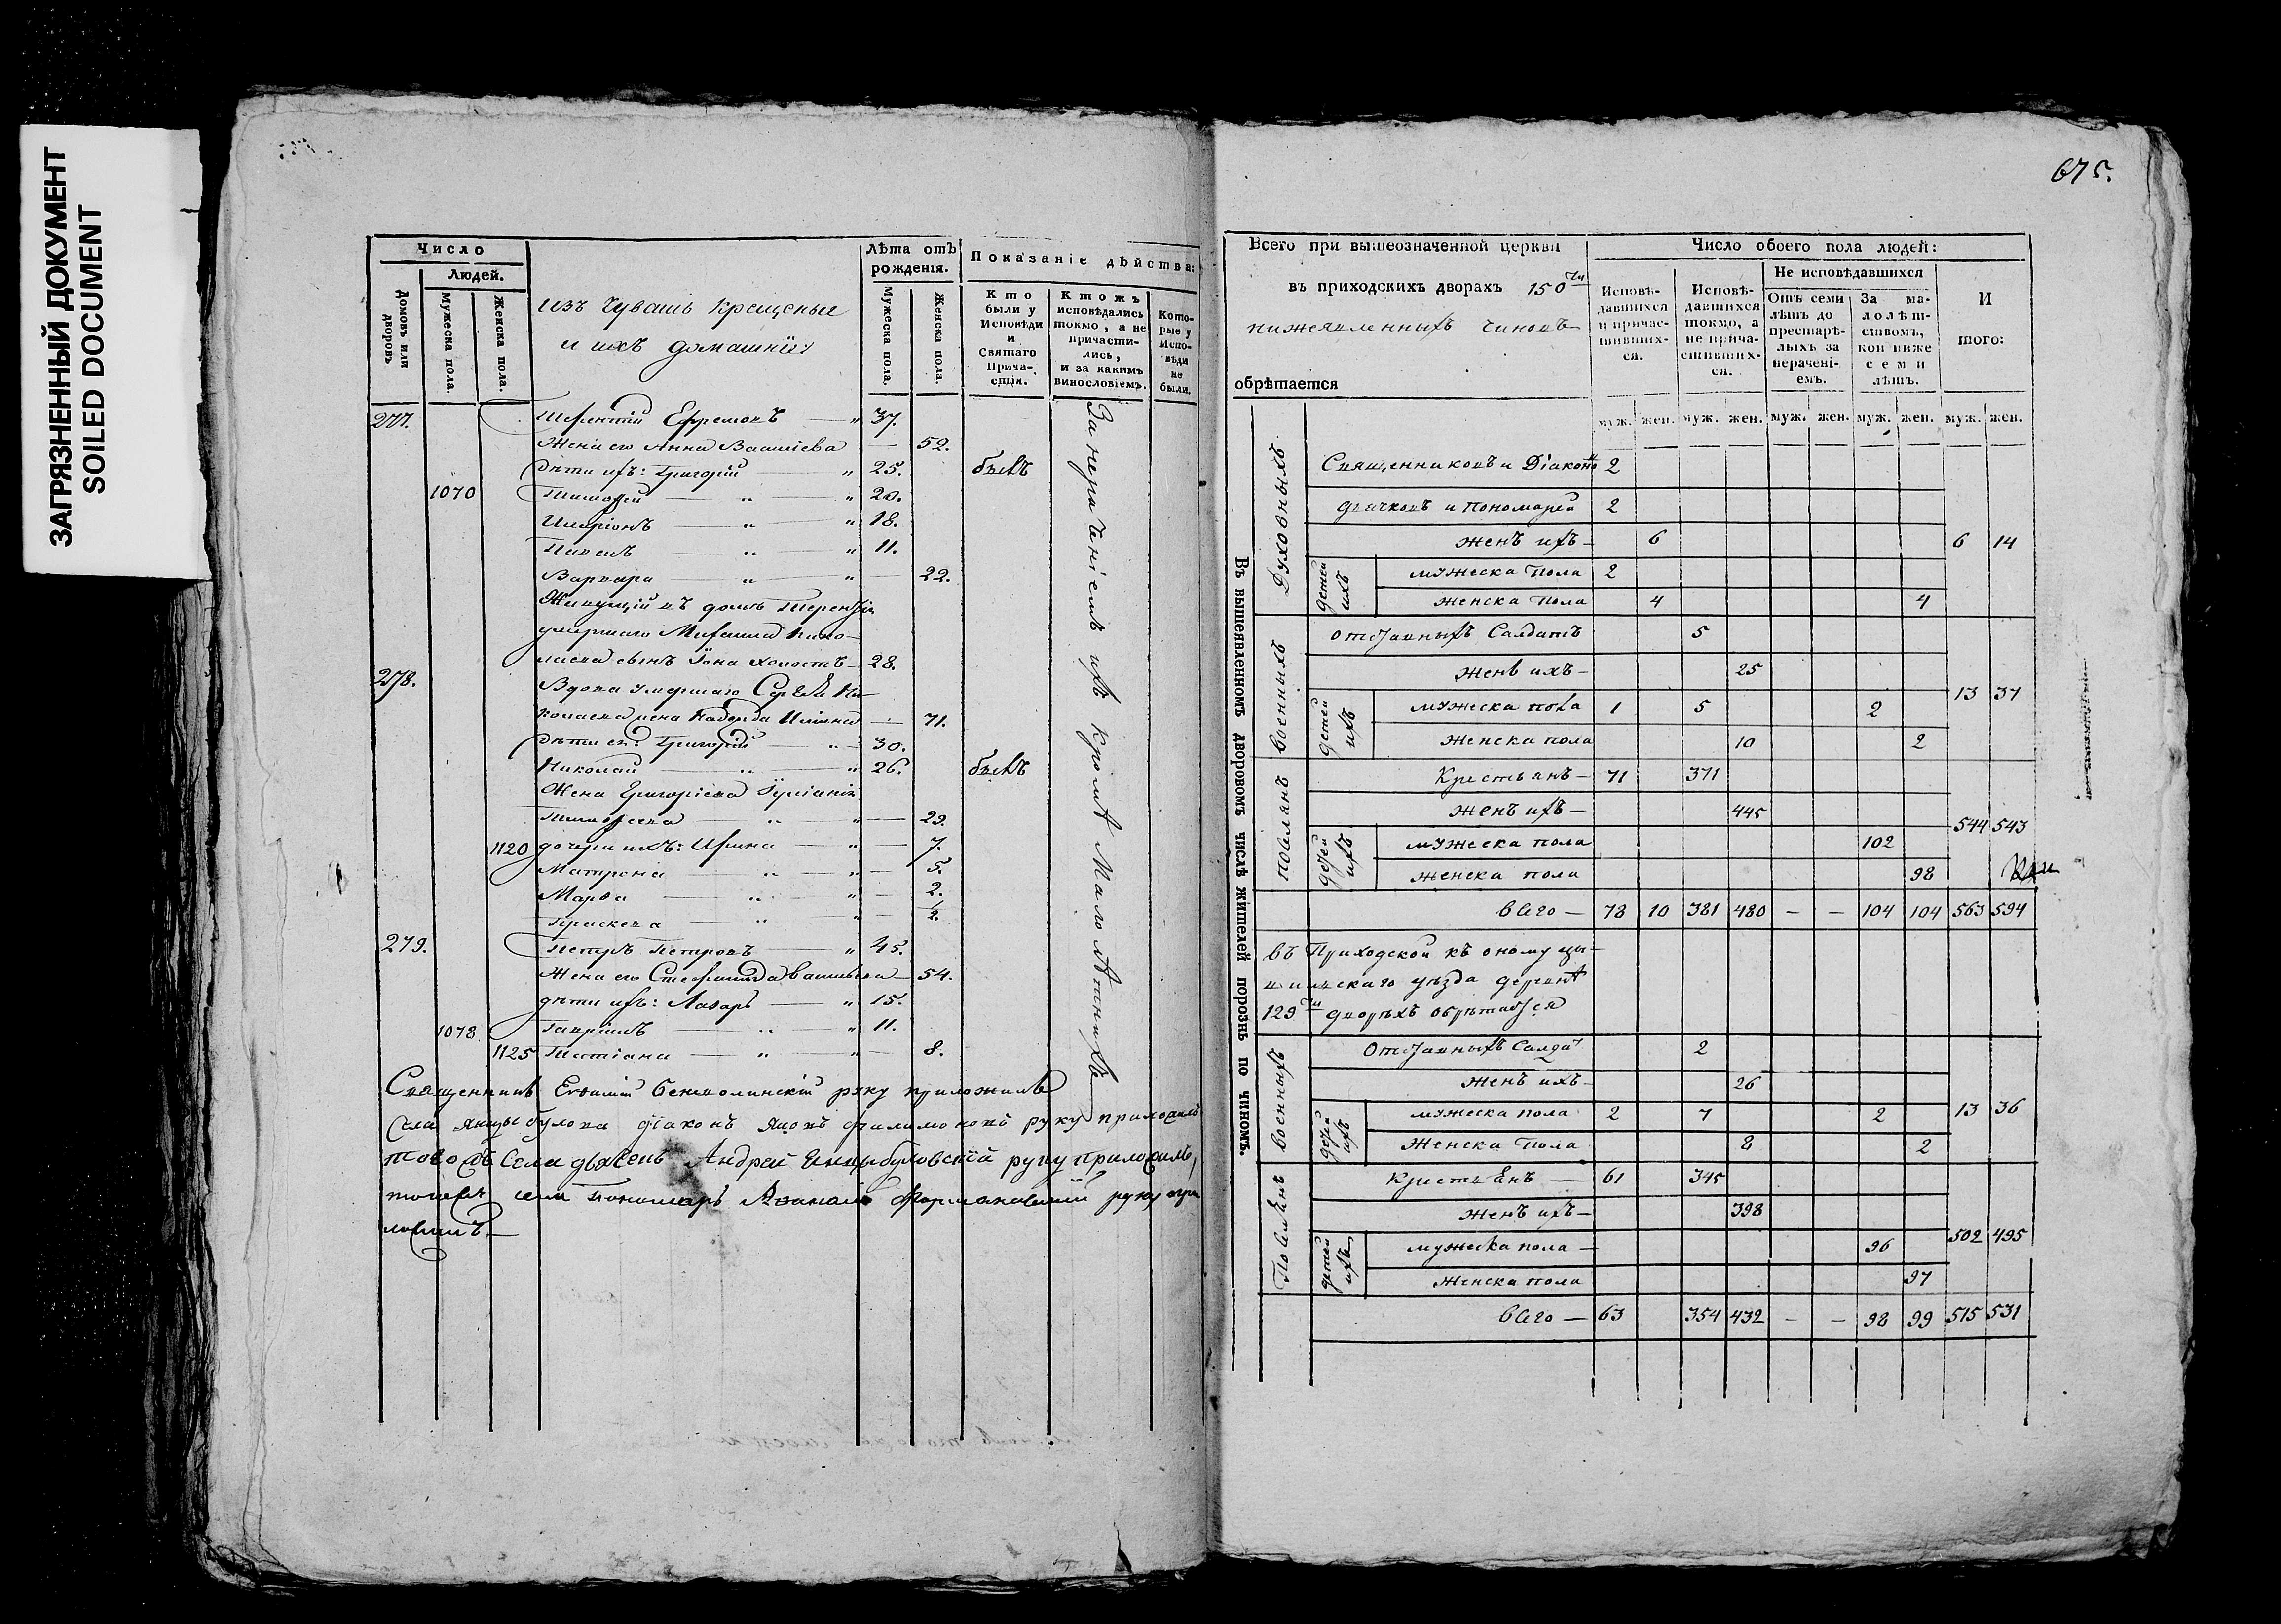 ЗАГРЯЗНЕННЫЙ ДОКУМЕНТ
SOILED DOCUMENT
Число
Людей.
Домовъ или дворовъ
Мужеска пола.
Женска пола.
изъ Чувашъ крещеные
и ихъ домашніе
Лѣта отъ рожденія.
Мужеска пола.
Женска пола.
Показаніе дѣйства:
Кто были у Исповѣди и Святаго Причастія.
Ктожъ исповѣдались токмо, а не причастились, и за какимъ винословіемъ.
Которые у Исповѣди не были.
277. Терентій Ефремовъ — " 37.
Жена его Анна — 52.
дѣти ихъ: Григорій — " 25. былъ
1070 Тимофей — " — " 20.
Иларіонъ — " — " 18.
Павелъ — " — " 11.
Варвара — " — " — 22.
Живущій въ домѣ Терентія
умершаго Михаила Нико-
лаева сынъ Іона холостъ — 28.
278. Вдова умершаго Сергѣя Ни-
колаева жена — 71.
дѣти ея: Григорій — " — 30.
Николай — " — " 26. былъ
Жена Григоріева
Тимофеева — " — " — 29.
1120 дочери ихъ: Ирина — " — 7.
Матрона — " — " — 5.
Марѳа — " — " — 2.
Праскева — " — " — 1/2.
279. Петръ Петровъ — " 45.
Жена его Стефанида Васильева — 54.
дѣти ихъ: Лазарь — " 15.
1078 Гавріилъ — " — " 11.
1125 Татіана — " — " — 8.
За нераченіемъ ихъ кромѣ малолѣтнихъ
Священникъ Евѳимій руку приложилъ
Села діаконъ Яковъ Филимоновъ руку приложилъ
тогожъ села дьячекъ Андрей руку приложилъ,
тогожъ села пономарь руку при-
ложилъ —
675.
Всего при вышеозначенной церкви
въ приходскихъ дворахъ 150ти
нижеявленныхъ чиновъ
обрѣтается
Число обоего пола людей:
Исповѣдавшихся и причастившихся.
Исповѣдавшихся токмо, а не причастившихся.
Не исповѣдавшихся
Отъ семи лѣтъ до престарѣлыхъ за нераченіемъ.
За малолѣтствомъ, кои ниже семи лѣтъ.
И того:
муж. жен. муж. жен. муж. жен. муж. жен. муж. жен.
Въ вышеявленномъ дворовомъ числѣ жителей порознь по чиномъ.
Духовныхъ
Священниковъ и Діаконовъ 2
дьячковъ и пономарей 2
женъ ихъ — 6 6 14
детей ихъ
мужеска пола 2
женска пола 4 4
военныхъ
отставныхъ Салдатъ 5
женъ ихъ — 25
13 37
детей ихъ
мужеска пола 1 5 2
женска пола 10 2
поселянъ
Крестьянъ — 71 371
женъ ихъ — 445
544 543
детей ихъ
мужеска пола 102
женска пола 98
всего — 78 10 381 480 — — 104 104 563 594
въ Приходской къ оному ци-
вильскаго уѣзда деревнѣ
129ти дворѣхъ обрѣтается
военныхъ
Отставныхъ Салдатъ 2
женъ ихъ — 26
13 36
детей ихъ
мужеска пола 2 7 2
женска пола 8 2
Поселянъ
Крестьянъ — 61 345
женъ ихъ — 398
502 495
детей ихъ
мужеска пола — 96
женска пола 97
всего — 63 354 432 — — 98 99 515 531